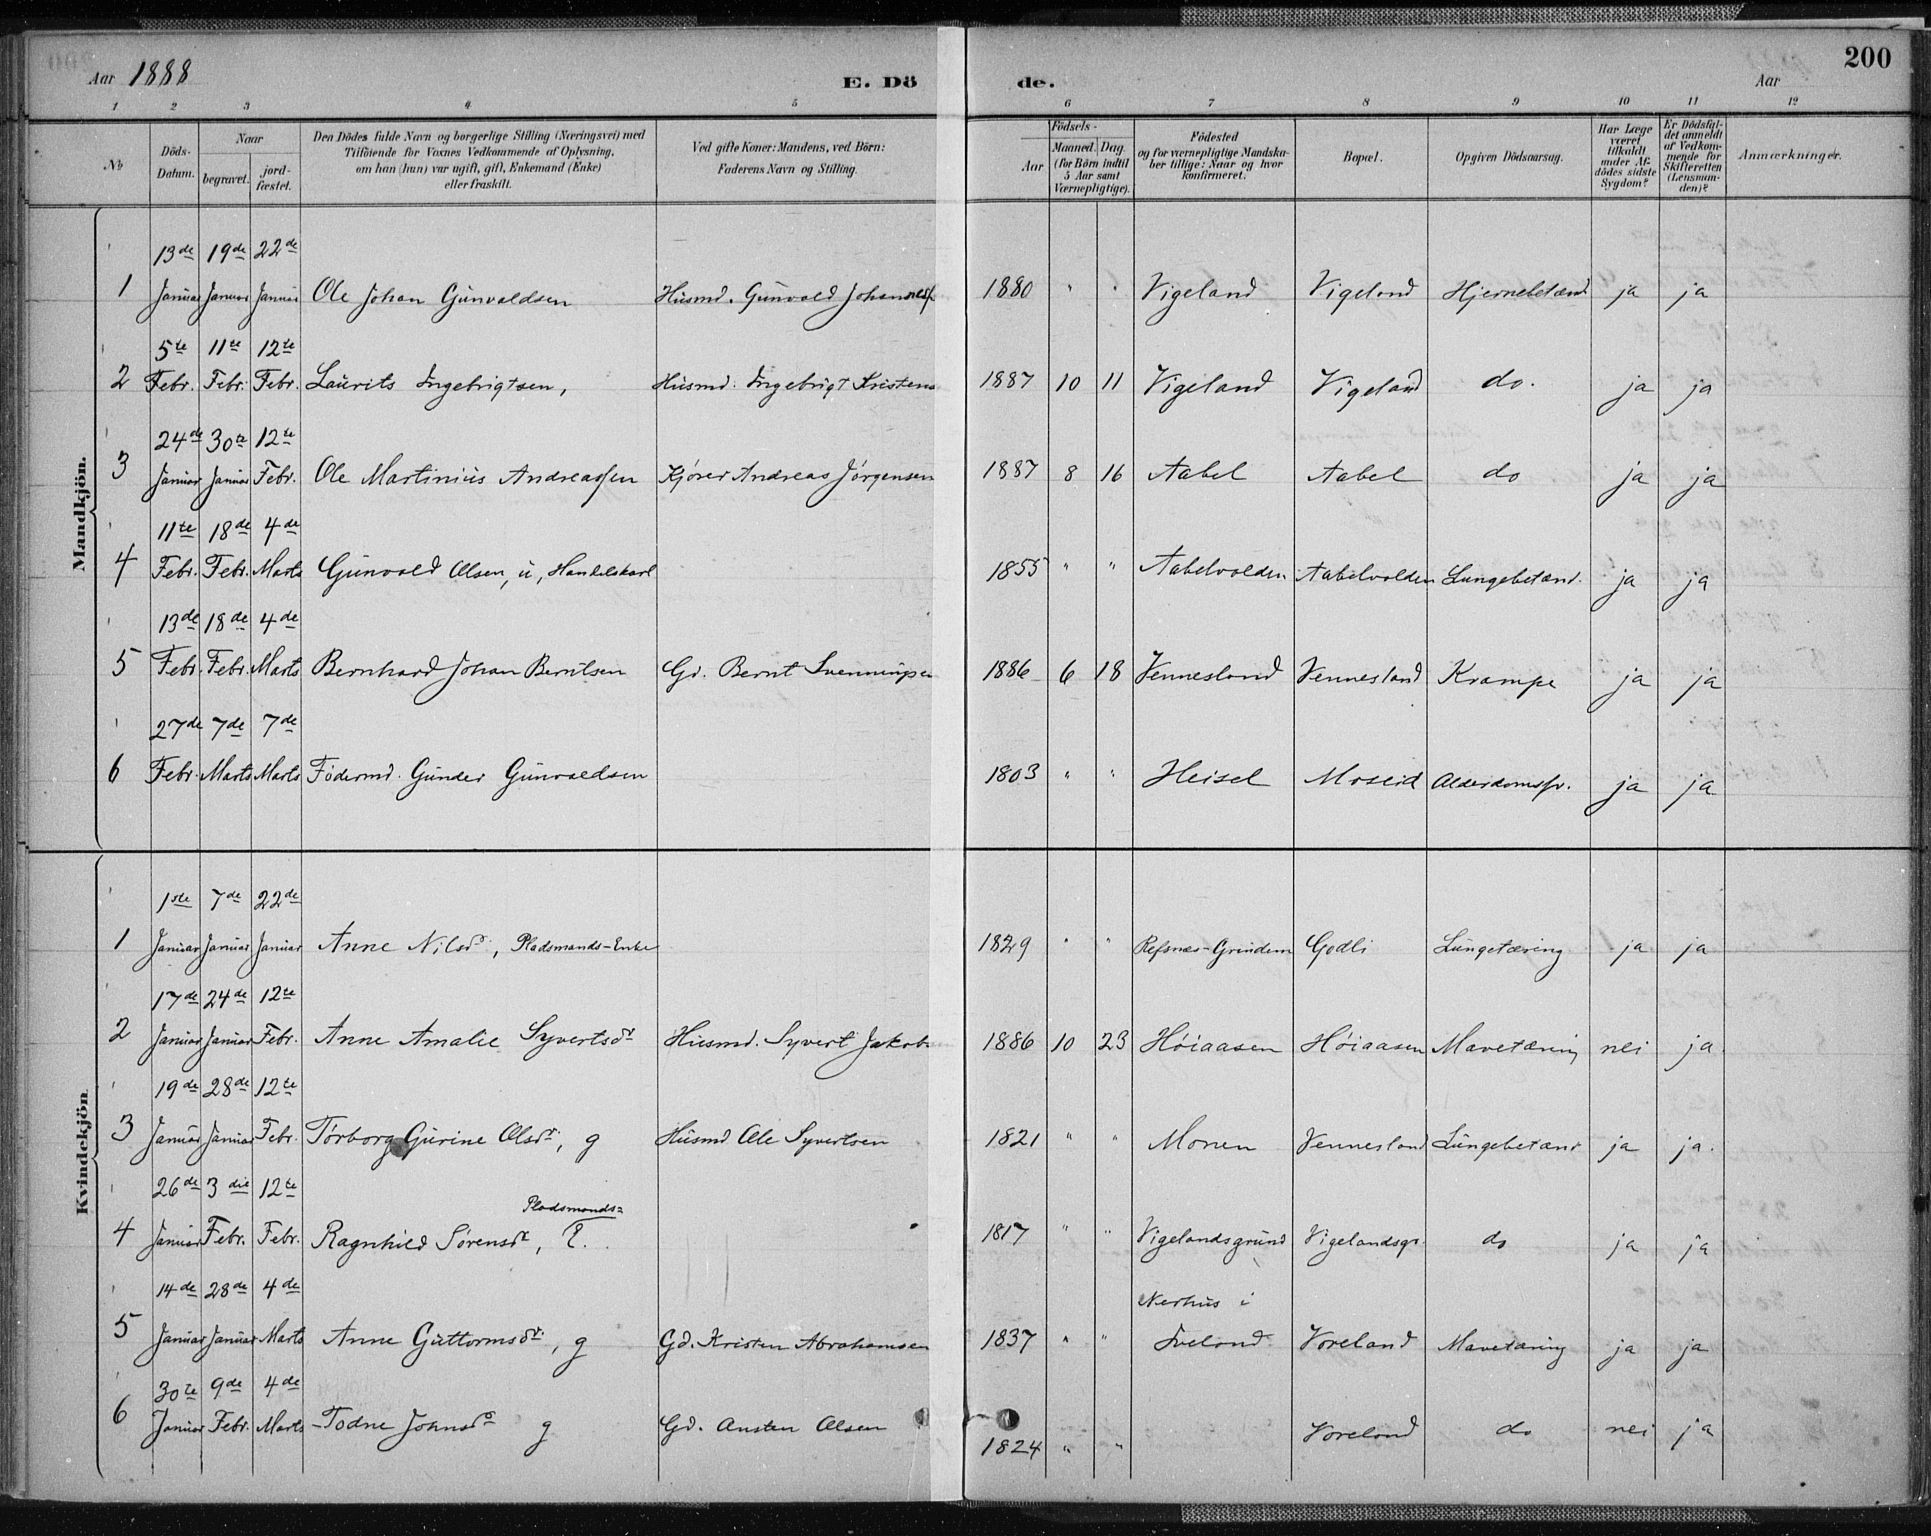 Aar 1888 E. Dö de. Aar 200
1 2 3 4 5 6 7 8 9 10 11 12
No
Döds-Datum.
Naar
begravet.
jord-fæstet.
Den Dödes fulde Navn og borgerlige Stilling (Næringsvei) med
Tilföiende for Voxnes Vedkommende af Oplysning,
om han (hun) var ugift, gift, Enkemand (Enke)
eller fraskilt.
Ved gifte Koner: Mandens, ved Börn:
Faderens Navn og Stilling.
Födsels-
Aar
Maaned. Dag.
(for Börn indtil
5 Aar samt
Værnepligtige).
Födested
og for værnepligtige Mandska-
ber tillige: Naar og hvor
konfirmeret.
Bopæl.
Opgiven Dödsaarsag.
Har Læge
været
tilkaldt
under Af-
dödes sidste
Sygdom?
Er Dödsfal-
det anmeldt
af Vedkom-
mende for
Skifteretten
(Lensman-
den)?
Anmærkninger.
Mandkjön.
13de 19de 22de
1 Januar Januar Januar Ole Johan Gunvaldsen Husmd. Gunvald Johanness 1880 " " Vigeland Vigeland Hjernebetænd. ja ja
5te 11te 12te
2 Febr. Febr. Febr. Laurits Ingebrigtsen, Husmd. Ingebrigt Kristens 1887 10 11 Vigeland Vigeland do. ja ja
24de 30te 12te
3 Januar Januar Febr. Ole Martinius Andreassen Kjører Andreas Jørgensen 1887 8 16 Aabel Aabel do ja ja
11te 18de 4de
4 Febr. Febr. Marts Gunvald Olsen, u, Handelskarl 1855 " " Aabelvolden Aabelvolden Lungebetænd. ja ja
13de 18de 4de
5 Febr. Febr. Marts Bernhard Johan Berntsen Gd. Bernt Svenningsen 1886 6 18 Vennesland Vennesland Krampe ja ja
27de 7de 7de
6 Febr. Marts Marts Födermd. Gunder Gunvaldsen 1803 " " Heisel Moseid Alderdomssv. ja ja
Kvindekjön
1ste 7de 22de
1 Januar Januar Januar Anne Nilsdr, Pladsmands-Enke 1829 " " Refsnæs-Grindem Godli Lungetæring ja ja
17de 24de 12te
2 Januar Januar Febr. Anne Amalie Syvertsdr Husmd. Syvert Jakob 1886 10 23 Høiaasen Høiaasen Mavetæring nei ja.
19de 28de 12te
3 Januar Januar Febr. Torborg Gurine Olsdr, g Husmd Ole Syvertsen 1821 " " Monen Vennesland Lungebetænd ja ja.
26de 3die 12te
Pladsmands=
4 Januar Febr. Febr. Ragnhild Sørensdr, E. 1817 " " Vigelandsgrund Vigelandsgr. do ja ja
14de 28de 4de
Nerhus i
5 Januar Januar Marts Anne Guttormsdr, g Gd. Kristen Abrahamsen 1837 " " Iveland Voreland Mavetæring ja ja
30te 9de 4de
6 Januar Febr. Marts Todne Johnsdr g Gd. Austen Olsen 1824 " " Voreland do nei ja